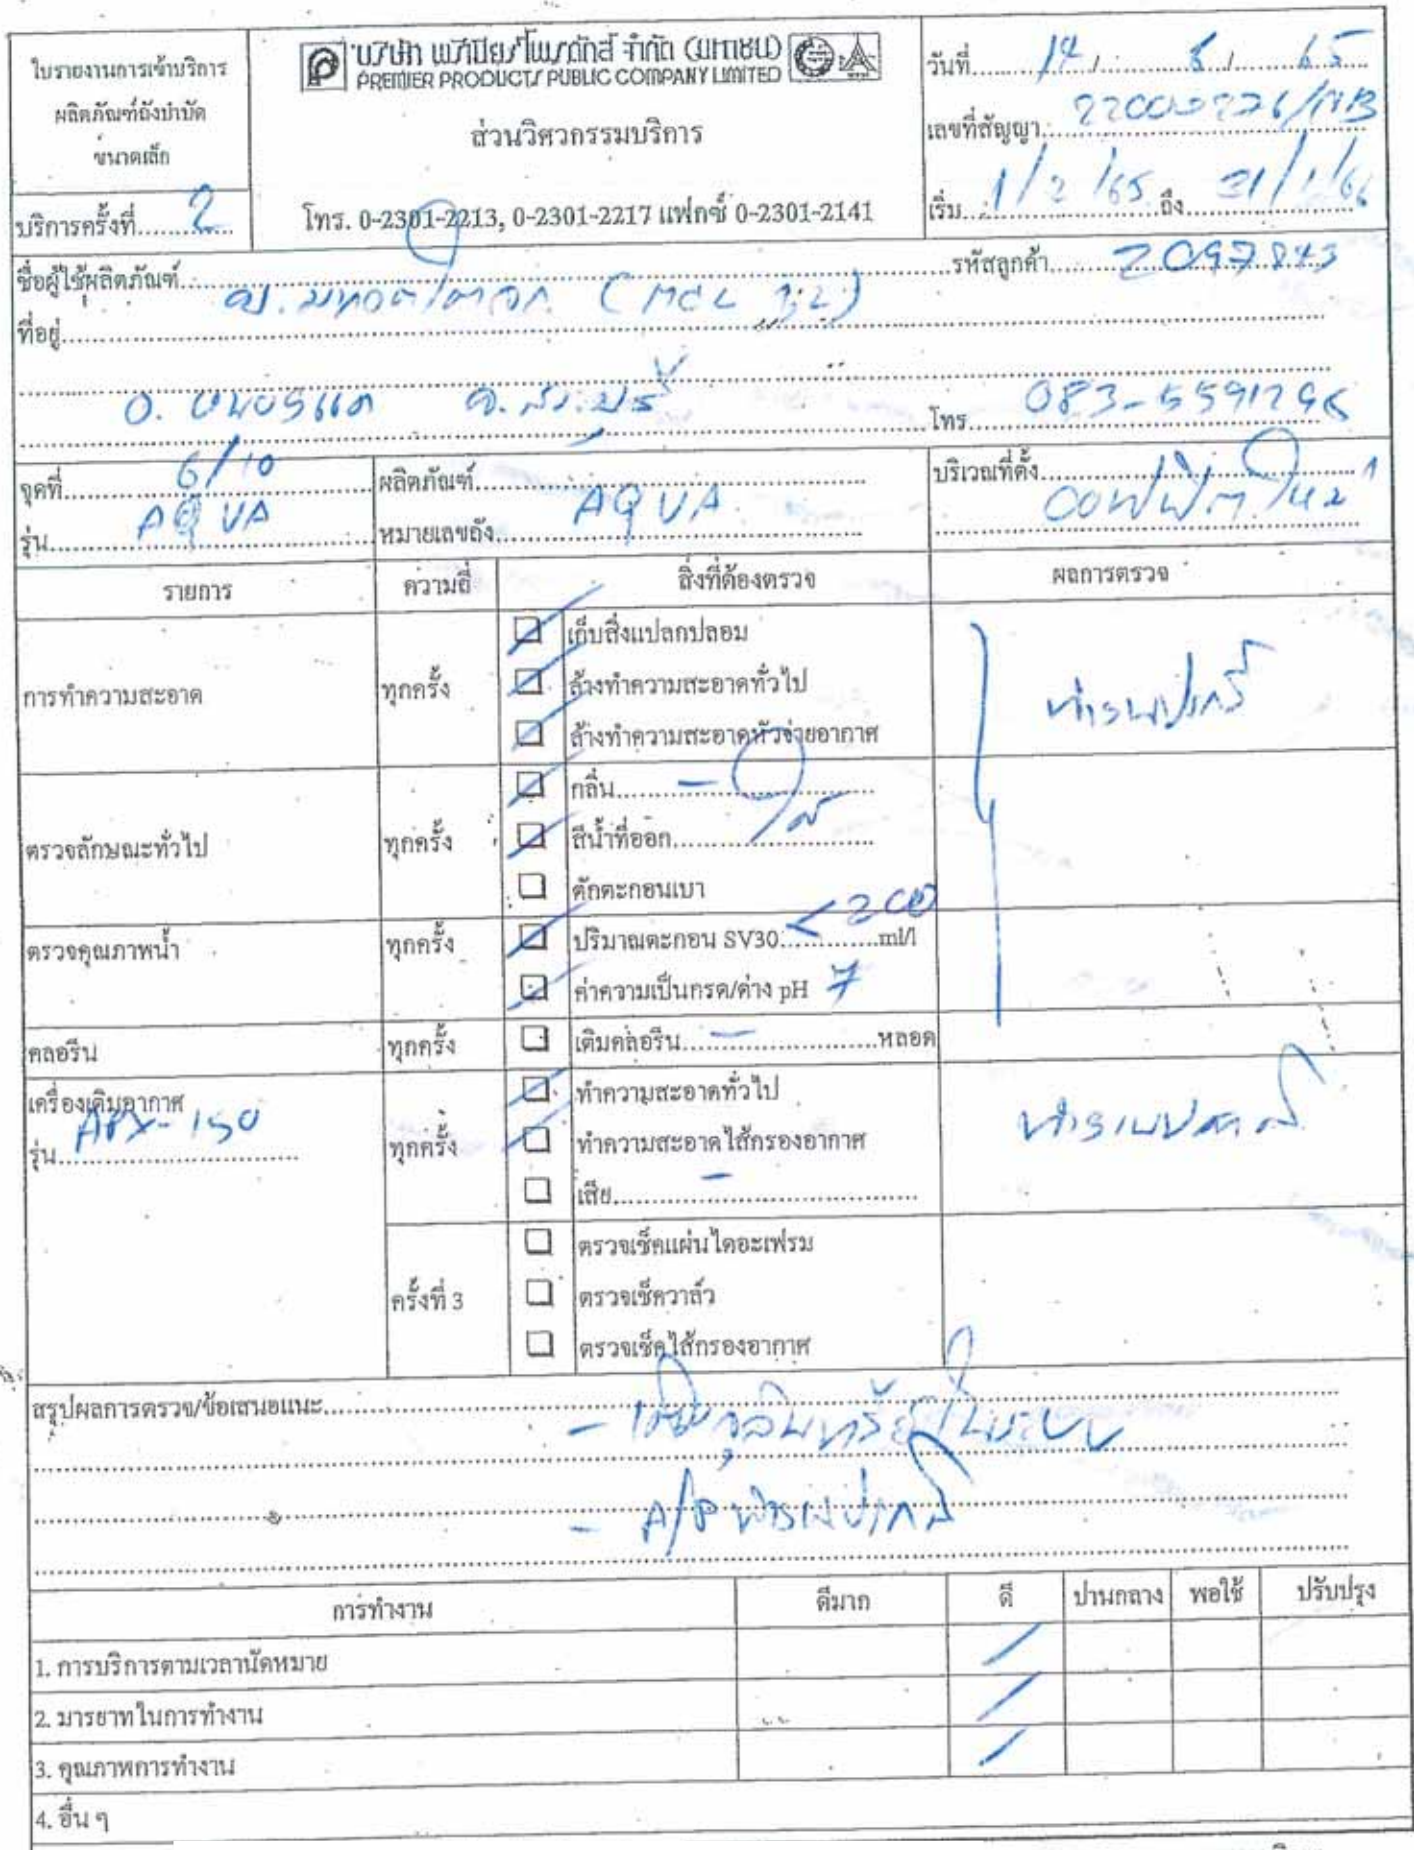 ใบรายงานการเข้าบริการ
ผลิตภัณฑ์ถังบำบัด
ขนาดเล็ก
บริการครั้งที่ 2
บริษัท พรีเมียร์ โพรดักส์ จำกัด (มหาชน)
PREMIER PRODUCTS PUBLIC COMPANY LIMITED
ส่วนวิศวกรรมบริการ
โทร. 0-2301-2213, 0-2301-2217 แฟกซ์ 0-2301-2141
วันที่ 14 / 6 / 65
เลขที่สัญญา
เริ่ม 1/2/65 ถึง 31/1/66
ชื่อผู้ใช้ผลิตภัณฑ์
รหัสลูกค้า 2097843
ที่อยู่
อ. หนองแค จ. สระบุรี
โทร 083-5591296
จุดที่ 6/10
ผลิตภัณฑ์ AQUA
บริเวณที่ตั้ง ออฟฟิตใหม่
รุ่น AQUA
หมายเลขถัง
รายการ ความถี่ สิ่งที่ต้องตรวจ ผลการตรวจ
การทำความสะอาด ทุกครั้ง
เก็บสิ่งแปลกปลอม
ล้างทำความสะอาดทั่วไป
ล้างทำความสะอาดหัวจ่ายอากาศ
ทำงานปกติ
ตรวจลักษณะทั่วไป ทุกครั้ง
กลิ่น -
สีน้ำที่ออก ใส
ตักตะกอนเบา
ตรวจคุณภาพน้ำ ทุกครั้ง
ปริมาณตะกอน SV30 <200 ml/l
ค่าความเป็นกรด/ด่าง pH 7
คลอรีน ทุกครั้ง เติมคลอรีน - หลอด
เครื่องเติมอากาศ
รุ่น APX-150
ทุกครั้ง
ทำความสะอาดทั่วไป
ทำความสะอาดไส้กรองอากาศ
เสีย -
ทำงานปกติ
ครั้งที่ 3
ตรวจเช็คแผ่นไดอะเฟรม
ตรวจเช็ควาล์ว
ตรวจเช็คไส้กรองอากาศ
สรุปผลการตรวจ/ข้อเสนอแนะ
- เติมจุลินทรีย์ในระบบ
- A/P ทำงานปกติ
การทำงาน ดีมาก ดี ปานกลาง พอใช้ ปรับปรุง
1. การบริการตามเวลานัดหมาย
2. มารยาทในการทำงาน
3. คุณภาพการทำงาน
4. อื่น ๆ